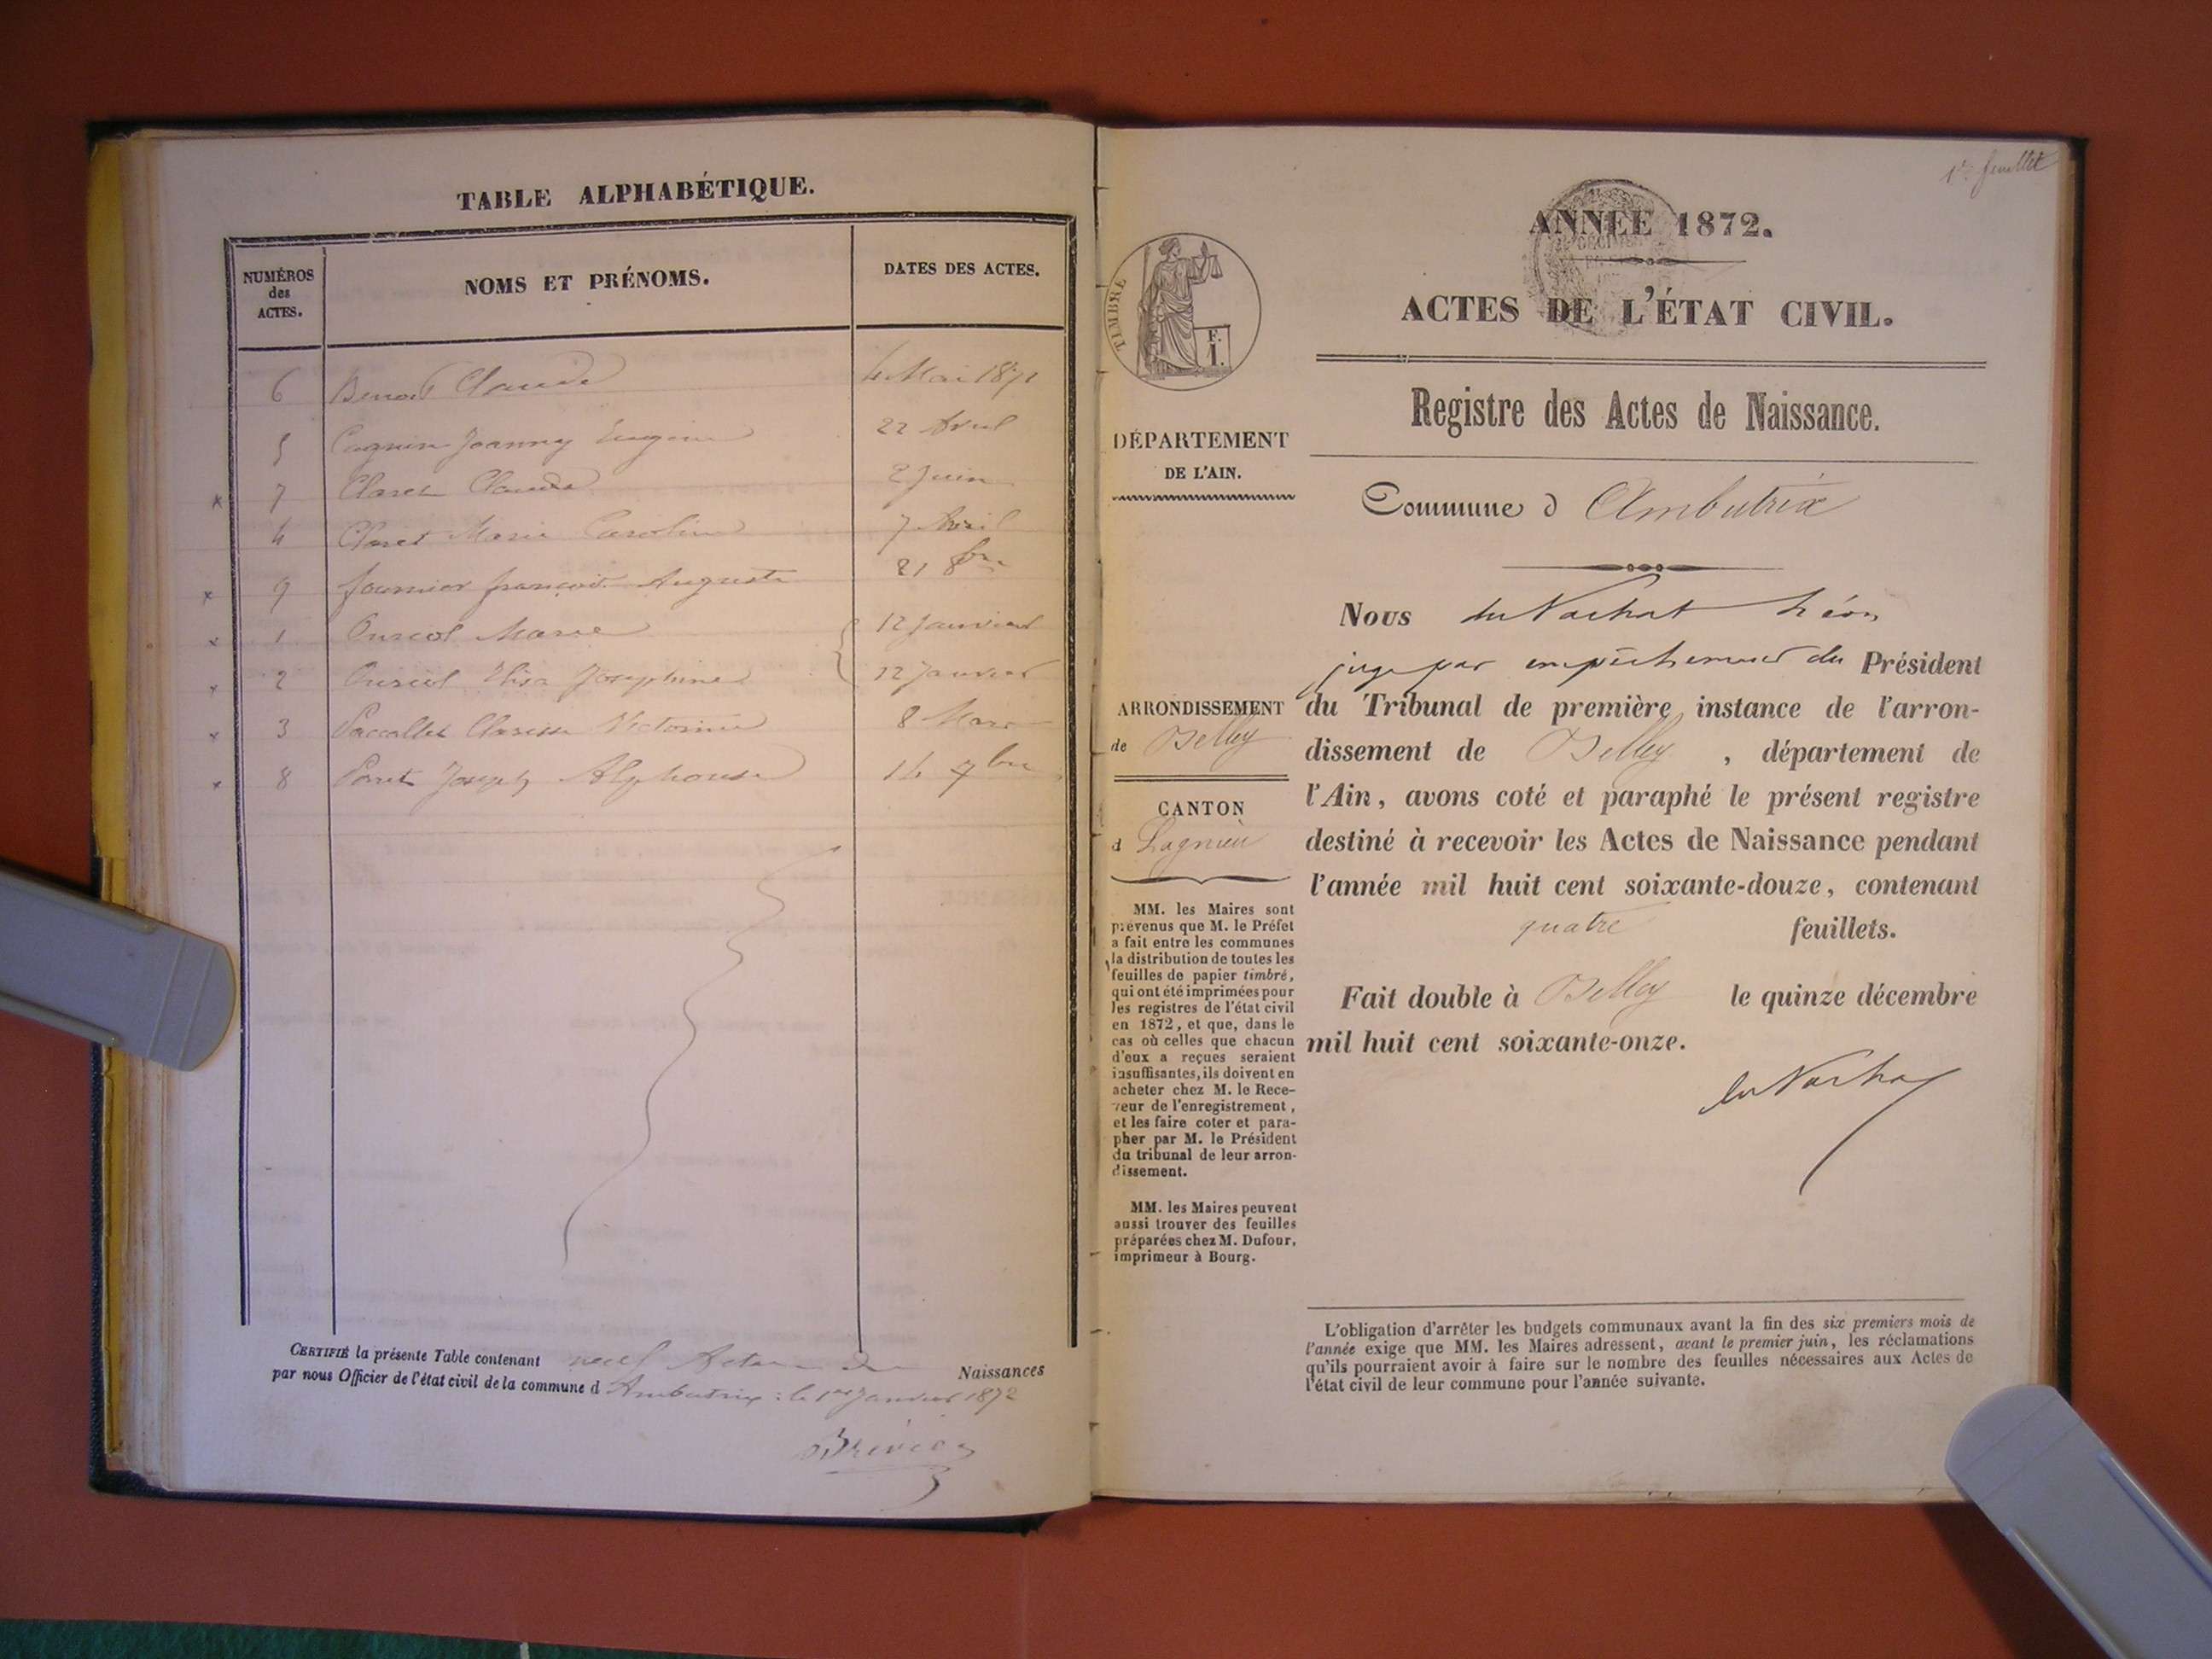 TABLE ALPHABÉTIQUE.
NUMÉROS
des
ACTES.
NOMS ET PRÉNOMS.
DATES DES ACTES.
6 Benoit Claude 4 Mai 1871
5 Joanny Eugène 22 Avril
7 Claret Claude 2 Juin
4 Claret Marie Caroline 7 Avril
9 fournier françois Auguste 21 8bre
1 Marie 12 Janvier
2 Elisa Joséphine 12 Janvier
3 Paccallet Clarisse Victorine 8 Mars
8 Joseph Alphonse 14 9bre
CERTIFIÉ la présente Table contenant neuf Actes de Naissances
par nous Officier de l'état civil de la commune d Ambutrix : le 1er Janvier 1872
1er feuillet
ANNÉE 1872.
ACTES DE L'ÉTAT CIVIL.
Registre des Actes de Naissance.
Commune d Ambutrix
TIMBRE
F.
1.
DÉPARTEMENT
DE L'AIN.
ARRONDISSEMENT
de Belley
CANTON
d Lagnieu
MM. les Maires sont
prévenus que M. le Préfet
a fait entre les communes
la distribution de toutes les
feuilles de papier timbré,
qui ont été imprimées pour
les registres de l'état civil
en 1872, et que, dans le
cas où celles que chacun
d'eux a reçues seraient
insuffisantes, ils doivent en
acheter chez M. le Rece-
veur de l'enregistrement,
et les faire coter et para-
pher par M. le Président
du tribunal de leur arron-
dissement.
MM. les Maires peuvent
aussi trouver des feuilles
préparées chez M. Dufour,
imprimeur à Bourg.
Nous du Vachat Léon
juge par empêchement du Président
du Tribunal de première instance de l'arron-
dissement de Belley, département de
l'Ain, avons coté et paraphé le présent registre
destiné à recevoir les Actes de Naissance pendant
l'année mil huit cent soixante-douze, contenant
quatre feuillets.
Fait double à Belley le quinze décembre
mil huit cent soixante-onze.
du Vachat
L'obligation d'arrêter les budgets communaux avant la fin des six premiers mois de
l'année exige que MM. les Maires adressent, avant le premier juin, les réclamations
qu'ils pourraient avoir à faire sur le nombre des feuilles nécessaires aux Actes de
l'état civil de leur commune pour l'année suivante.